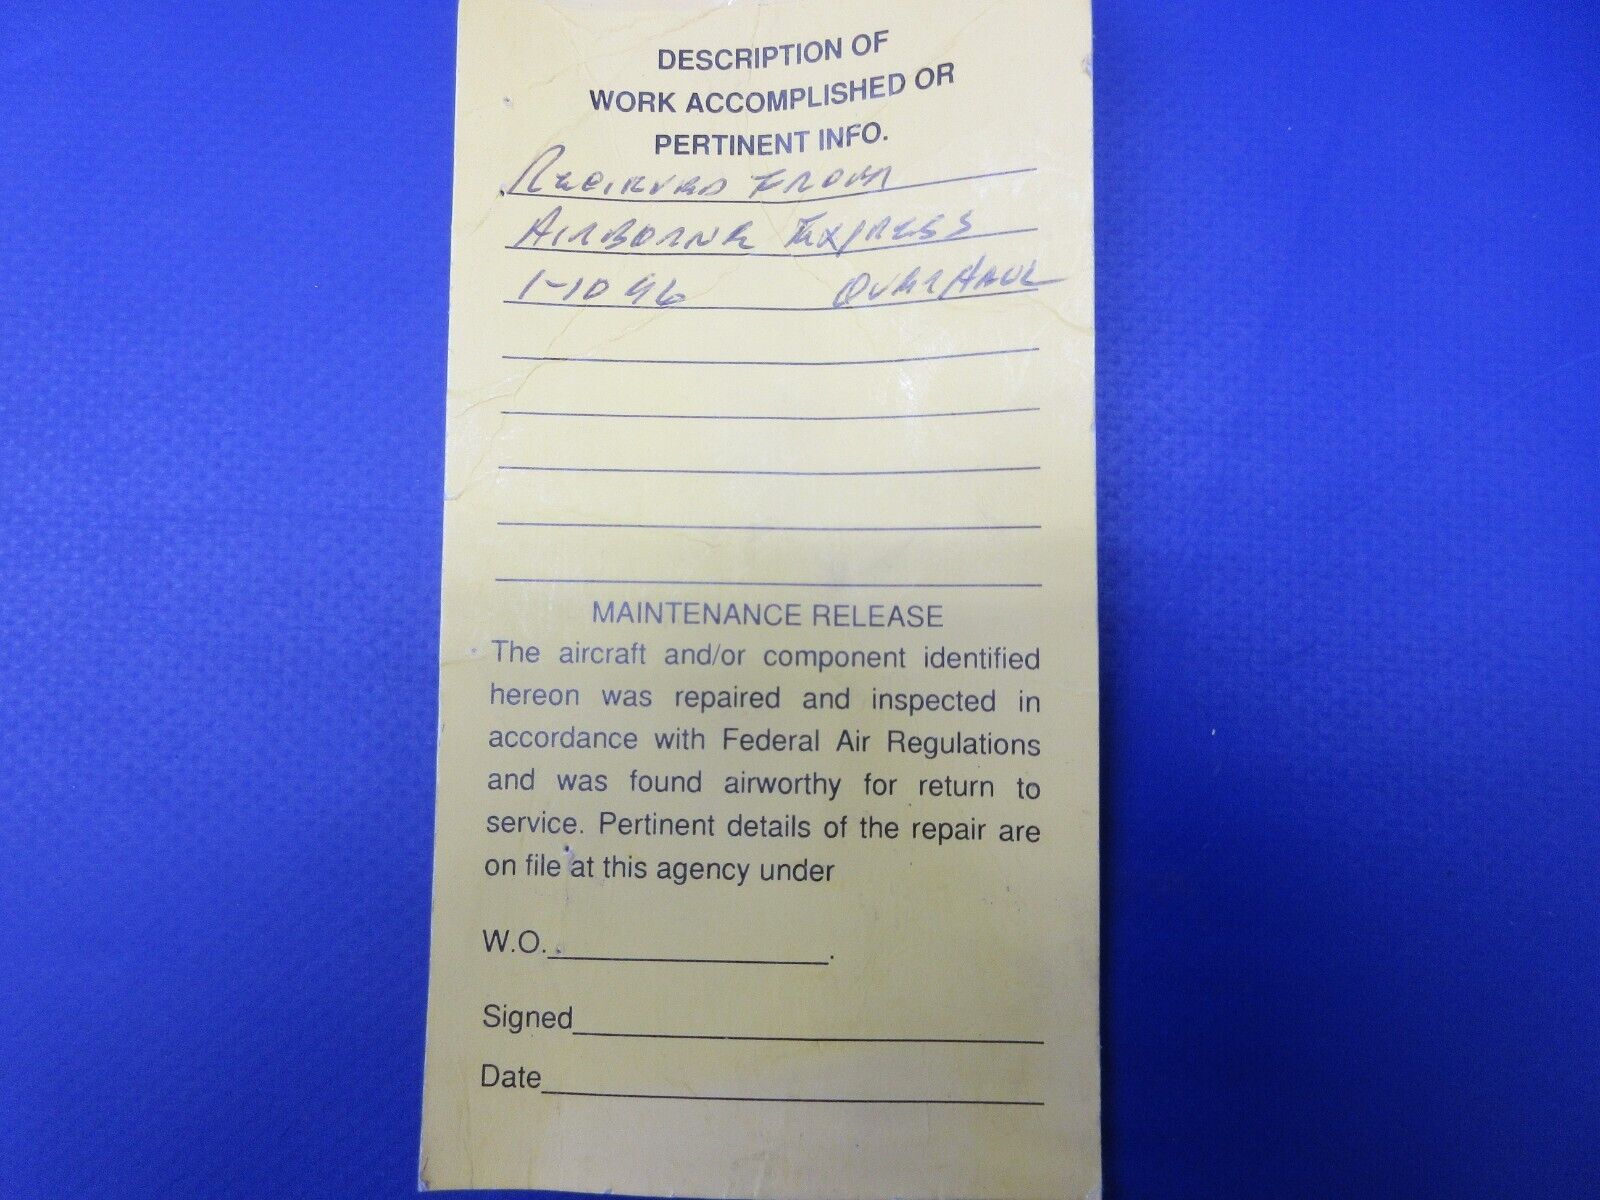 DESCRIPTION OF
WORK ACCOMPLISHED OR
PERTINENT INFO.
RECEIVED FROM
AIRBORNE EXPRESS
1-10 96 OVERHAUL
MAINTENANCE RELEASE
The aircraft and/or component identified
hereon was repaired and inspected in
accordance with Federal Air Regulations
and was found airworthy for return to
service. Pertinent details of the repair are
on file at this agency under
W.O.____________.
Signed____________
Date____________